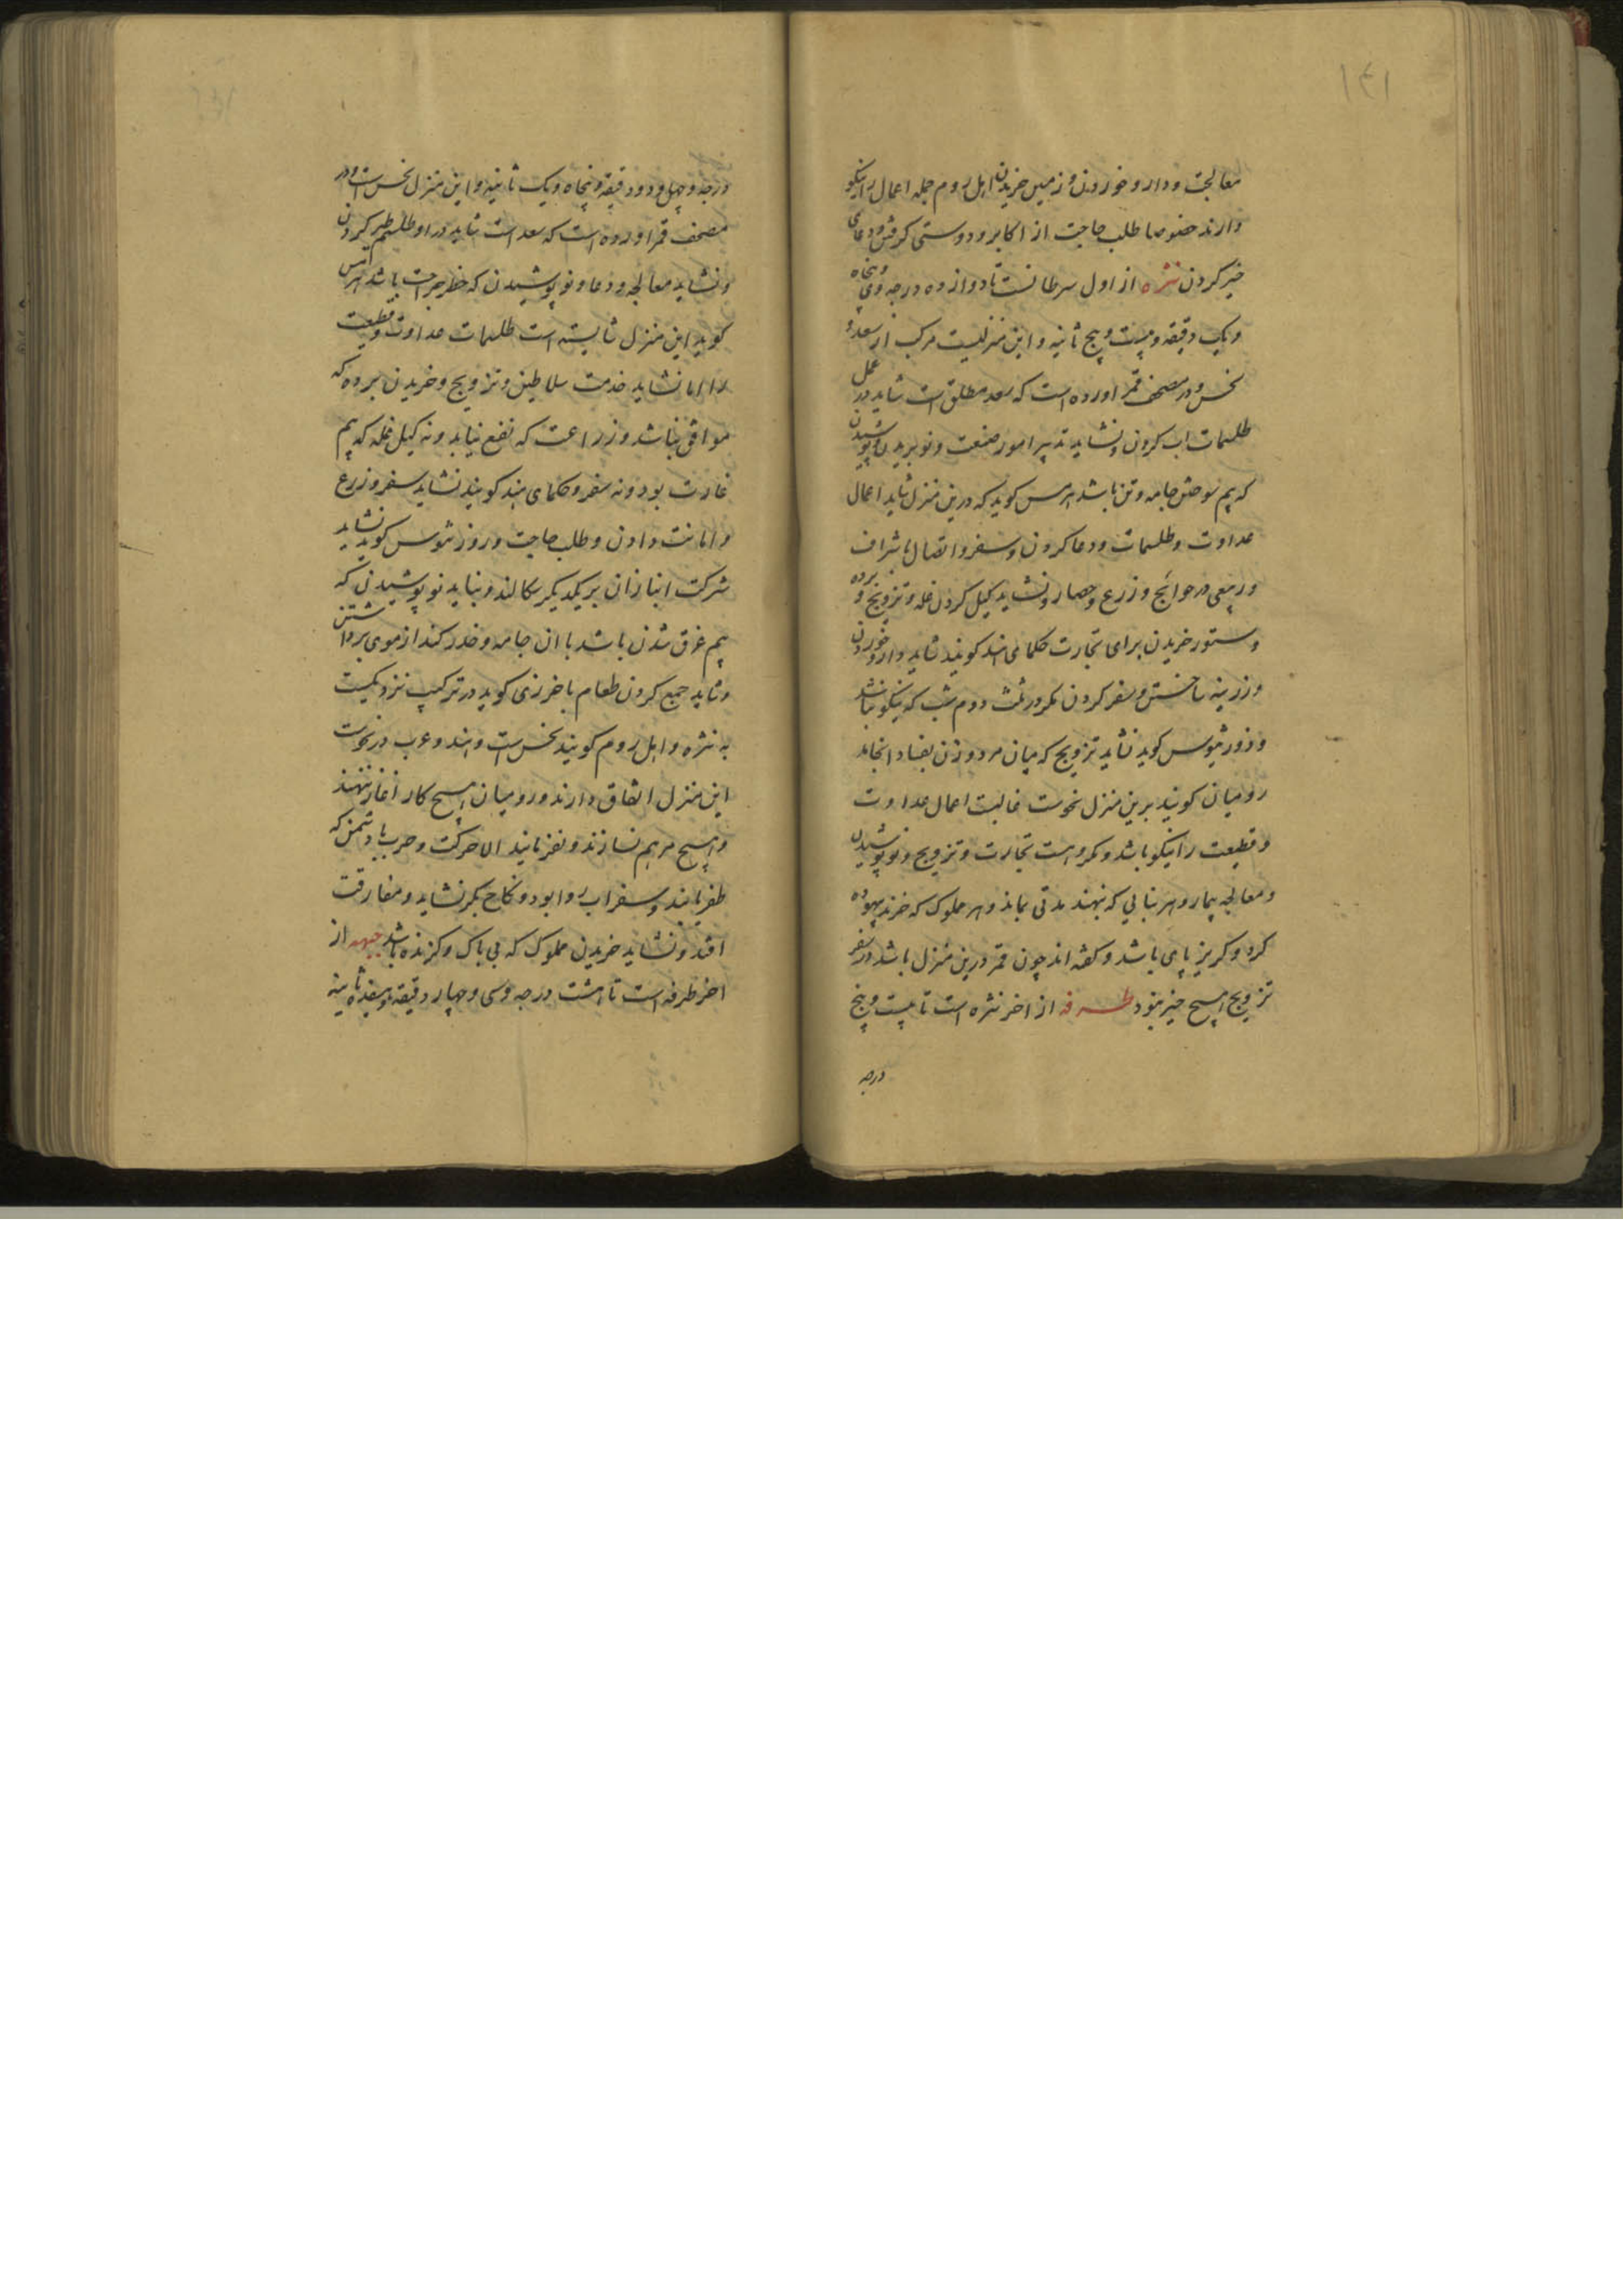 ۱۴۱
معالجت و دارو خوردن و زمین خریدن اهل روم جمله اعمال را نیکو
دارند خصوصا طلب حاجت از اکابر و دوستی کرفتن و دعای
خیر کردن نثره از اول سرطانست تا دوازده درجه و پنجاه
و یک دقیقه و بیست و پنج ثانیه و این منزلیست مرکب از سعد و
نحس و در مصحف قمر اورده است که سعد مطلق است شاید در عمل
طلسمات اب کردن و نشاید تدبیر امور صنعت و نو بریدن و پوشیدن
که بیم سوختن جامه و تن باشد هرمس کوید که درین منزل شاید اعمال
عداوت و طلسمات و دعا کردن و سفر و اتصال باشراف
و سعی در حوائج و زرع و حصار و نشاید کیل کردن غله و تزویج و برده
و ستور خریدن برای تجارت حکمای هند کویند شاید دارو خوردن
و زرینه ساختن و سفر کردن مکر در ثلث دوم شب که نیکو نباشد
و ذورثیوس کوید نشاید تزویج که میان مرد و زن بفساد انجامد
رومیان کویند برین منزل نحوست غالبت اعمال عداوت
و قطیعت را نیکو باشد و مکروهست تجارت و تزویج و نو پوشیدن
و معالجه بیمار و هر بنایی که نهند مدتی بماند و هر مملوک که خرند بیهوده
کرد و کریز پای باشد و کفته اند چون قمر درین منزل باشد در سفر
تزویج هیچ خیر نبود طرفه از اخر نثره است تا بیست و پنج
درجه
درجه و چهل و دو دقیقه و پنجاه و یک ثانیه و این منزل نحس است و در
مصحف قمر اورده است که سعد است شاید در او طلسم طیر کردن
و نشاید معالجه و دعا و نو پوشیدن که خطر جراحت باشد هرمس
کوید این منزل شایسته است طلسمات عداوت و قطیعت
را اما نشاید خدمت سلاطین و تزویج و خریدن برده که
موافق نباشد و زراعت که نفع نیابد و نه کیل غله که بیم
غارت بود و نه سفر و حکمای هند کویند نشاید سفر و زرع
و امانت دادن و طلب حاجت و روزثیوس کوید نشاید
شرکت انبازان بر یکدیکر سکالند و نباید نو پوشیدن که
بیم غرق شدن باشد با ان جامه و حذر کند از موی برداشتن
و شاید جمع کردن طعام باخرزی کوید در ترکیب نزدیکست
به نثره و اهل روم کویند نحس است و هند و عرب در نحوست
این منزل اتفاق دارند و رومیان هیچ کار اغاز ننهند
و هیچ مرهم نسازند و نفرمایند الا حرکت و حرب با دشمن که
ظفر یابند و سفر اب روا بود و نکاح بکر نشاید و مفارقت
افتد و نشاید خریدن مملوک که بی باک و کزنده باشد جبهه از
اخر طرفه است تا هشت درجه و سی و چهار دقیقه و هفده ثانیه